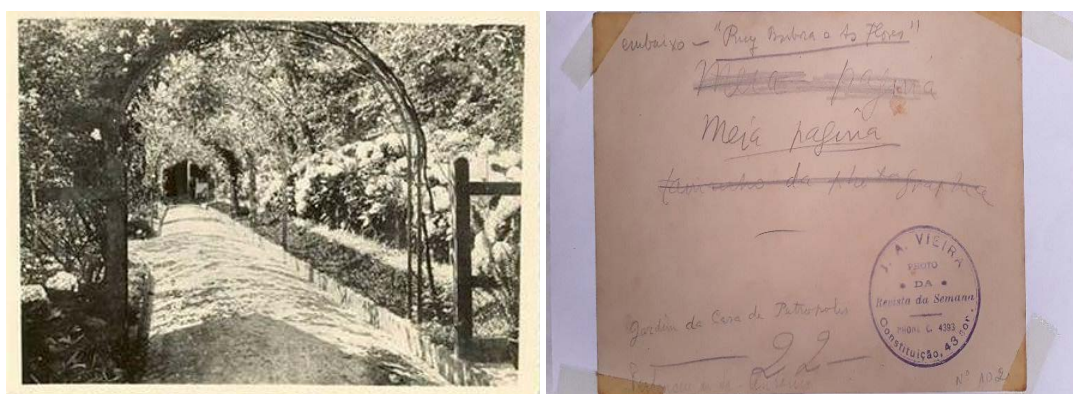 embaixo — "Ruy Barbosa e As Flores"
Meia pagina
Meia pagina
tamanho da photographia
J. A. VIEIRA
PHOTO
DA
Revista da Semana
PHONE C. 4393
Constituição, 43 sob.
Jardim da Casa de Petropolis
22
Nº 102